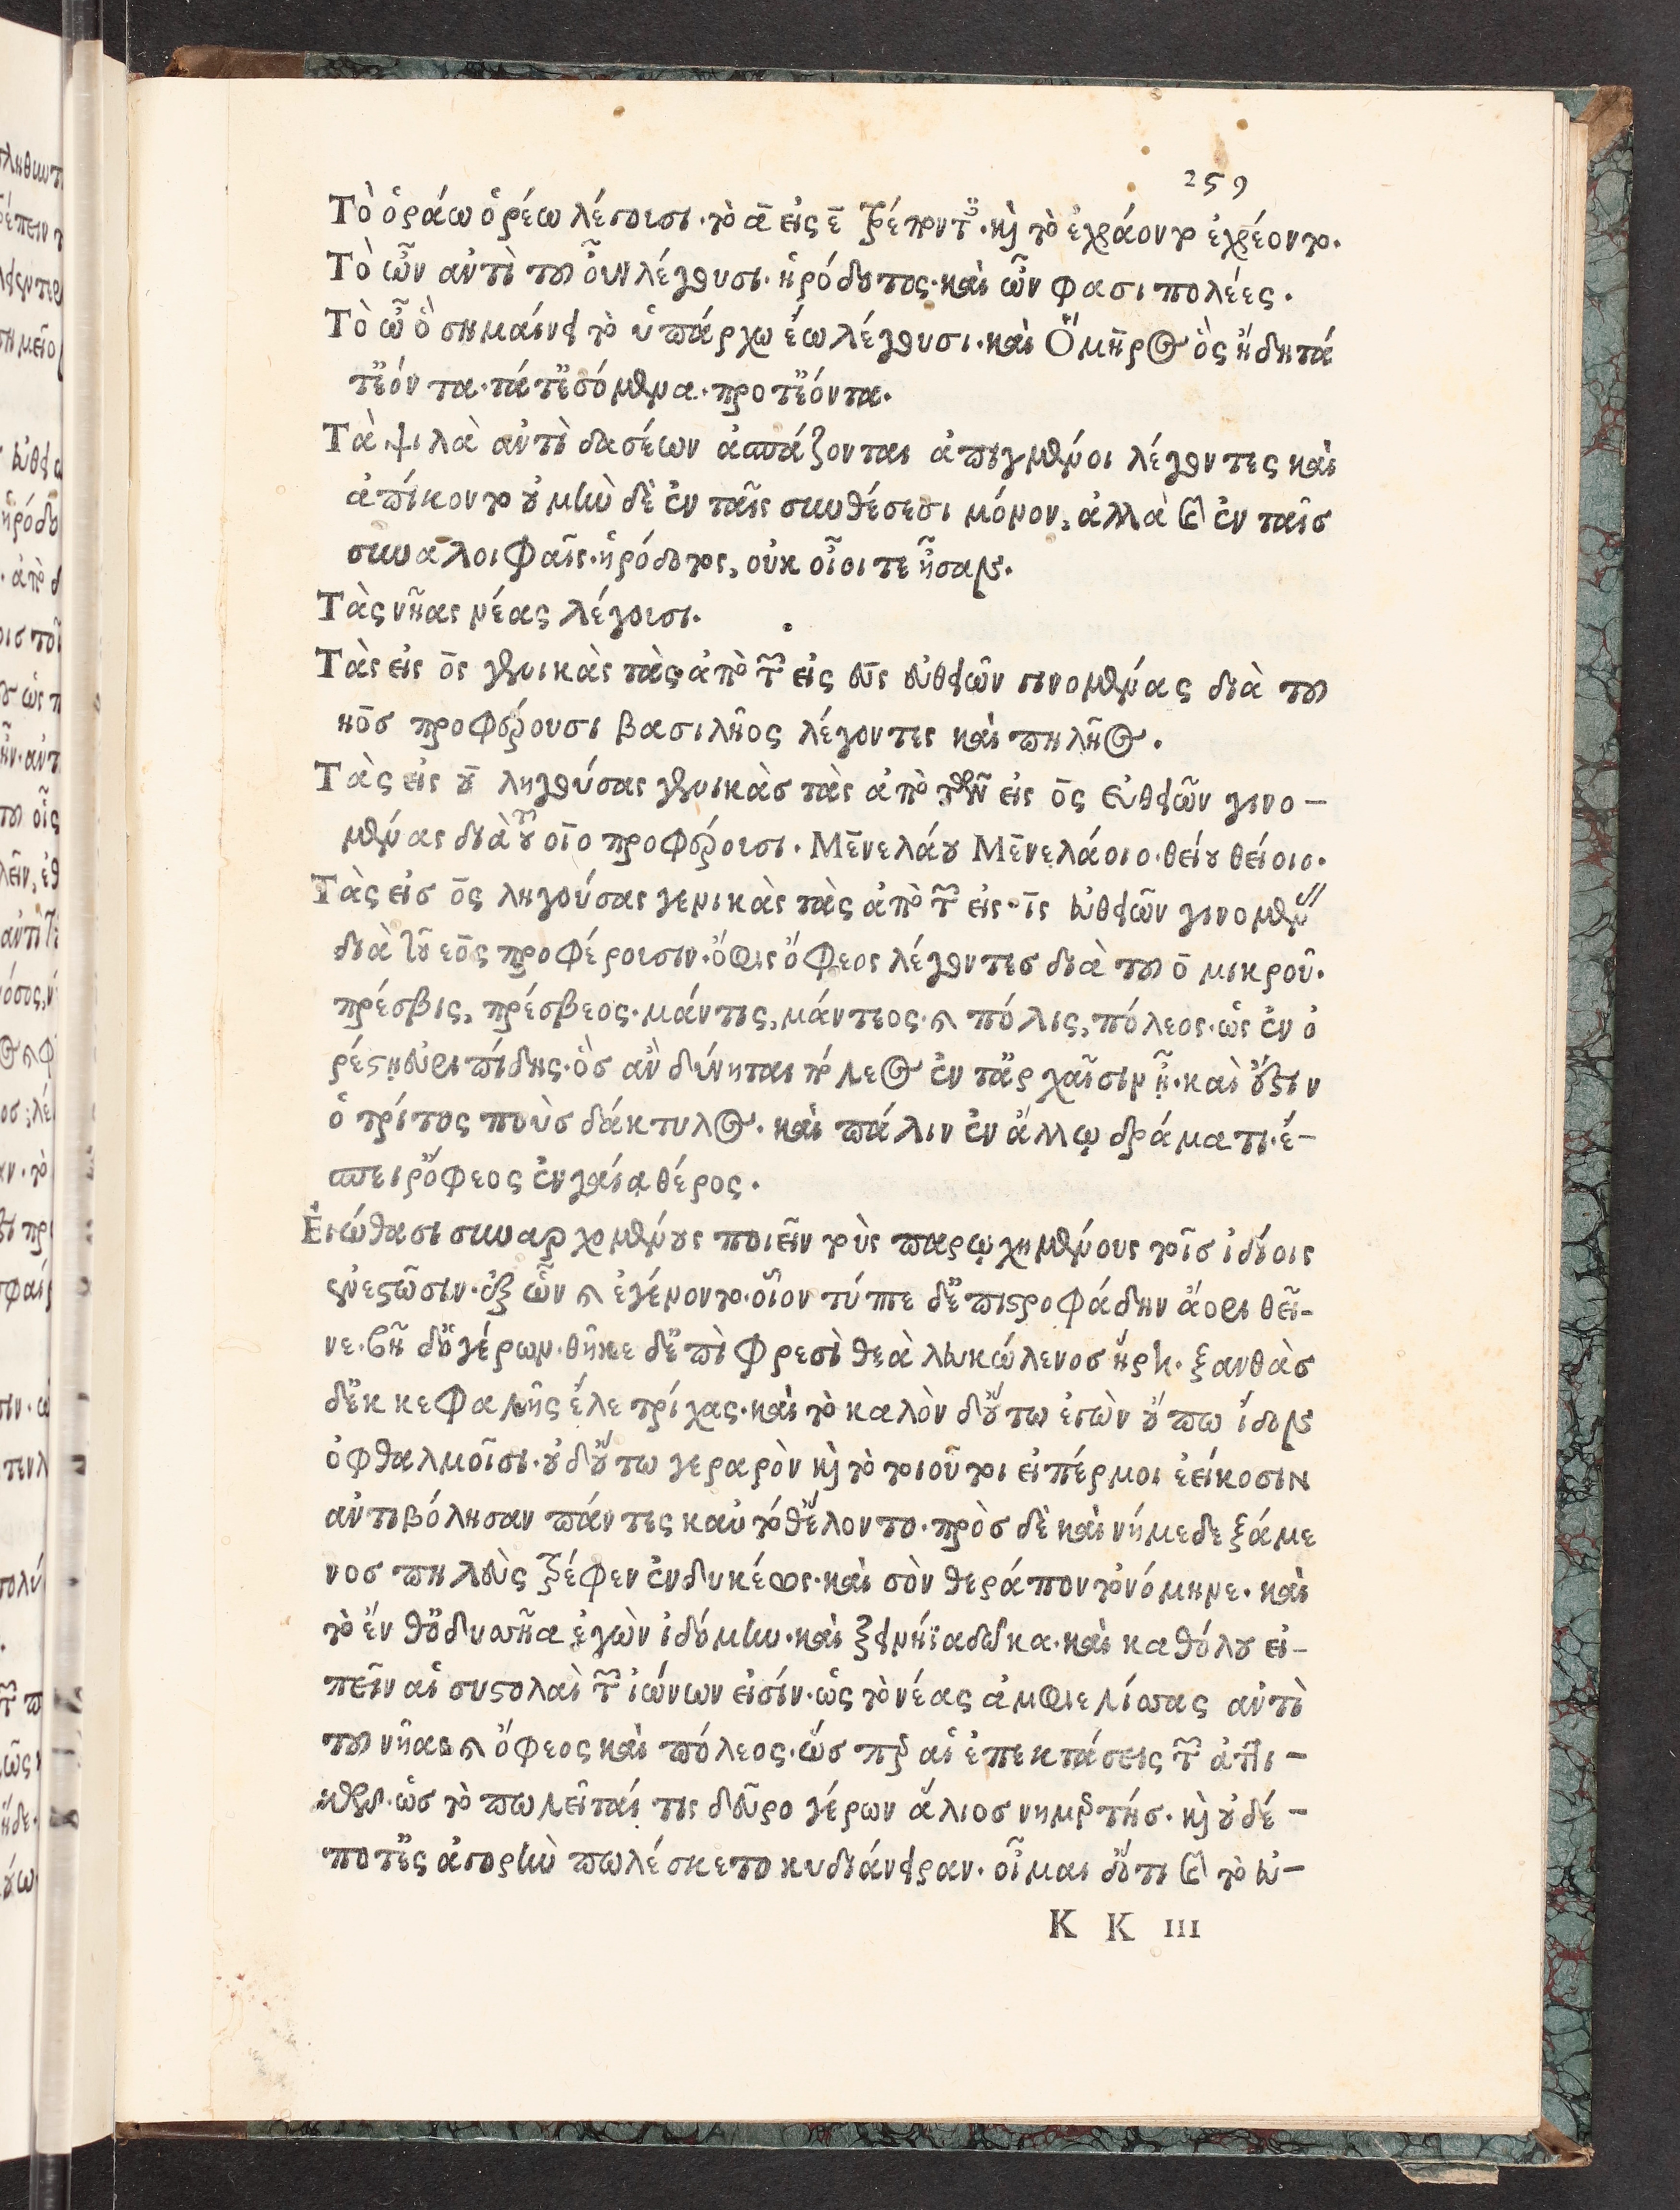 259
Τὸ ὁράω ὁρέω λέγουσι·τὸ ᾱ εἰς ε̄ τρέποντες·καὶ τὸ ἐχράοντο ἐχρέοντο.
Τὸ ὦν αὐτὶ τοῦ οὖν λέγουσι·ἡρόδοτος·καὶ ὦν φασι πολέες.
Τὸ ὦ ὃ σημαίνει τὸ ὑπάρχω ἔω λέγουσι·καὶ Ὅμηρος ὃς ἤδη τά
τ' ἐόν τα·τά τ' ἐσόμενα·προ τ' ἐόντα.
Τὰ ψιλὰ αὐτὶ δασέων ἀσπάζονται ἀπιγμένοι λέγοντες καὶ
ἀπίκοντο οὐ μὴν δὲ ἐν ταῖς συνθέσεσι μόνον, ἀλλὰ καὶ ἐν ταῖσ
συναλοιφαῖς·ἡρόδοτος, οὐκ οἷοι τε ἦσαν.
Τὰς νῆας νέας λέγουσι.
Τὰς εἰς ο̄ς γενικὰς τὰς ἀπὸ τῶν εἰς εῡς εὐθειῶν γινομένας διὰ τοῦ
ηο̄σ προφέρουσι βασιλῆος λέγοντες καὶ πηλῆος.
Τὰς εἰς οῡ ληγούσας γενικὰσ τὰς ἀπὸ τῶν εἰς ο̄ς εὐθειῶν γινο-
μένας διὰ τοῦ οῑο προφέρουσι. Μενελάου Μενελάοιο·θείου θείοιο.
Τὰς εἰσ ο̄ς ληγούσας γενικὰς τὰς ἀπὸ τῶν εἰς ῑς εὐθειῶν γινομένας
διὰ τοῦ εο̄ς προφέρουσιν·ὄφις ὄφεος λέγοντεσ διὰ τοῦ ο̄ μικροῦ.
πρέσβις, πρέσβεος·μάντις, μάντεος·καὶ πόλις, πόλεος·ὡς ἐν ὀ
ρέστῃ εὐριπίδης·ὃσ ἂν δύνηται πόλεος ἐν τ' ἀρχαῖσιν ᾖ·καὶ ἔστιν
ὁ τρίτος ποὺσ δάκτυλος. καὶ πάλιν ἐν ἄλλῳ δράματι·ἔ-
σπειρ' ὄφεος ἐν γαίᾳ θέρος.
Εἰώθασι συναρχομένους ποιεῖν τοὺς παρῳχημένους τοῖσ ἰδίοις
ἐνεστῶσιν·ἐξ ὧν καὶ ἐγένοντο·οἷον τύπτε δ' ἐπιστροφάδην ἄορι θεῖ-
νε·βῆ δ' ὁ γέρων·θῆκε δ' ἐπὶ φρεσὶ θεὰ λευκώλενοσ ἥρη·ξανθὰσ
δ' ἐκ κεφαλῆς ἕλε τρίχας·καὶ τὸ καλὸν δ' οὕτω ἐγὼν οὔπω ἴδον
ὀφθαλμοῖσι·οὐδ' οὕτω γεραρὸν καὶ τὸ τοιοῦτοι εἰπέρμοι ἐείκοσιν
αὐτιβόλησαν πάντες καὐτόθ' ὄλοντο·πρὸσ δὲ καὶ νήμεδε ξάμε
νοσ πηλεὺς τρέφεν ἐνδυκέως·καὶ σὸν θεράποντ' ὀνόμηνε. καὶ
τὸ ἔνθ' ὀδυσῆα ἐγὼν ἰδόμην·καὶ ξεινήϊα δῶκα·καὶ καθόλου εἰ-
πεῖν αἱ συστολαὶ τῶν ἰώνων εἰσίν·ὡς τὸ νέας ἀμφιελίσσας αὐτὶ
τοῦ νῆας καὶ ὄφεος καὶ πόλεος·ὥσπερ αἱ ἐπεκτάσεις τῶν ἀττι-
κῶν·ὡσ τὸ πωλεῖταί τις δεῦρο γέρων ἅλιοσ νημερτήσ·καὶ οὐδέ-
ποτ' ἐς ἀγορὴν πωλέσκετο κυδιάνειραν·οἶμαι δ' ὅτι καὶ τὸ εὐ-
K K III